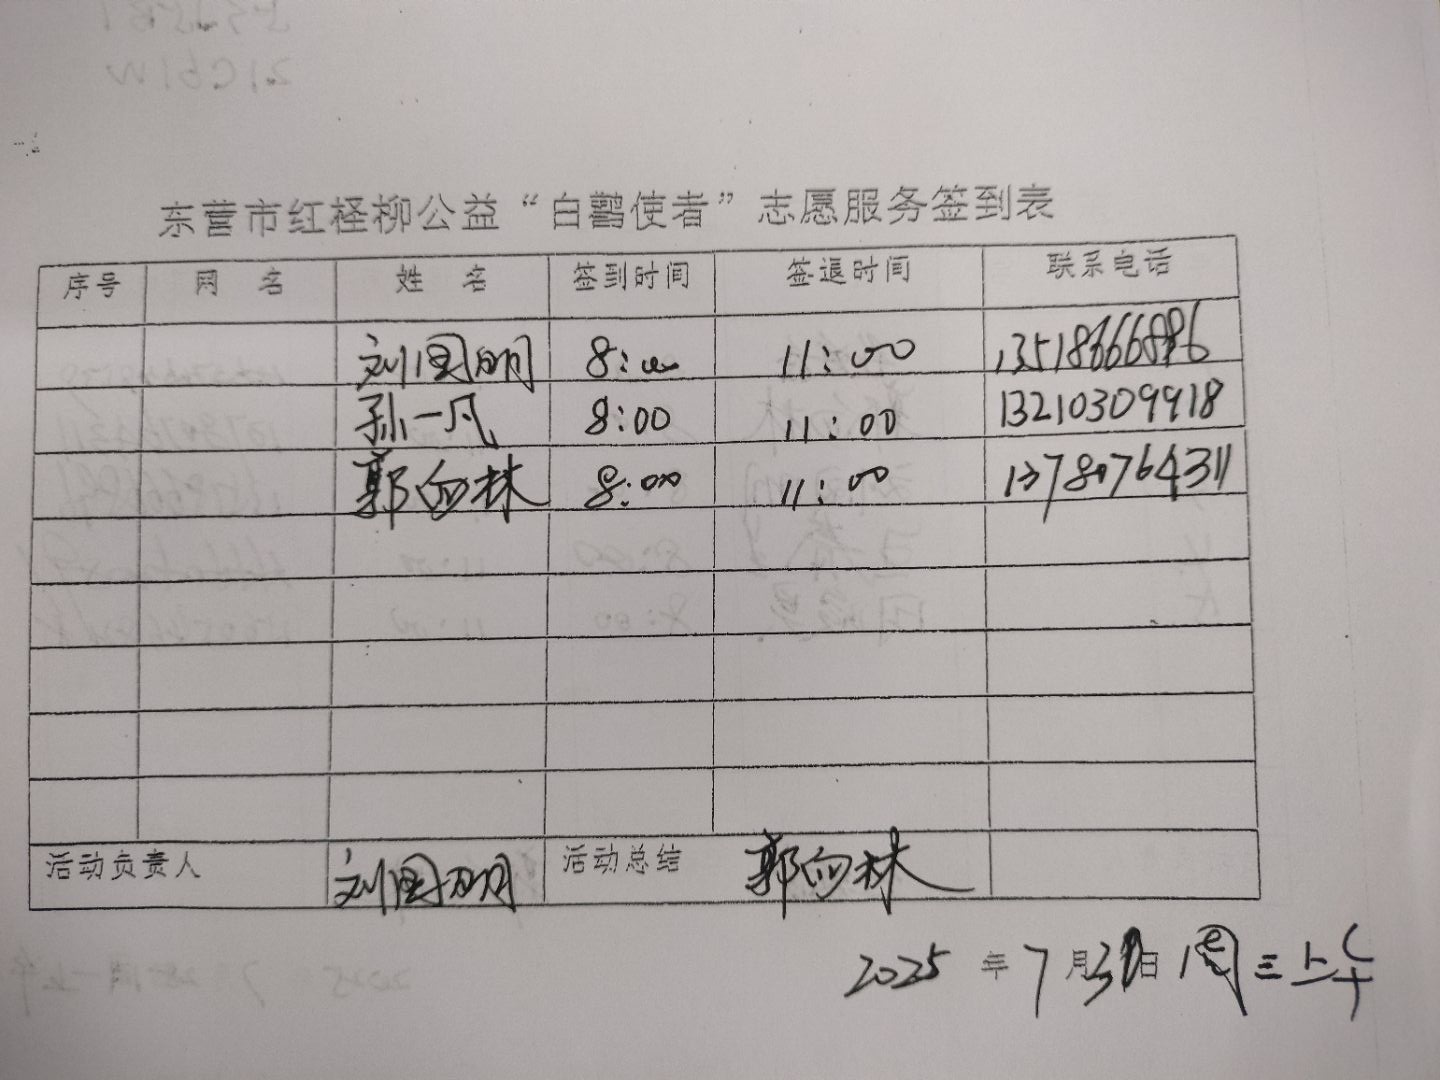 东营市红柽柳公益“白鹳使者”志愿服务签到表
序号 网 名 姓 名 签到时间 签退时间 联系电话
刘国明 8:00 11:00 13518666886
孙一凡 8:00 11:00 13210309918
郭向林 8:00 11:00 13780764311
活动负责人 刘国明 活动总结 郭向林
2025 年 7 月 日 周三上午